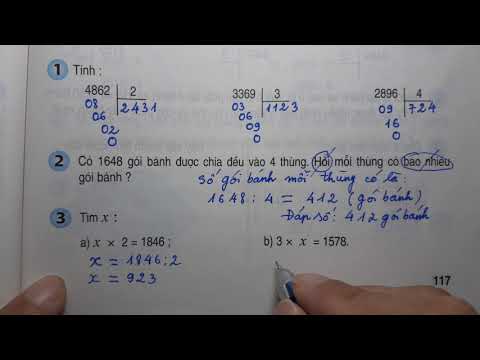 1 Tính :
4862 2 3369 3 2896 4
08 2431 03 1123 09 724
06 06 16
02 09 0
0 0
2 Có 1648 gói bánh được chia đều vào 4 thùng. Hỏi mỗi thùng có bao nhiêu
gói bánh ?
Số gói bánh mỗi thùng có là:
1648 : 4 = 412 (gói bánh)
Đáp số: 412 gói bánh
3 Tìm x :
a) x × 2 = 1846 ; b) 3 × x = 1578.
x = 1846 : 2
x = 923
117